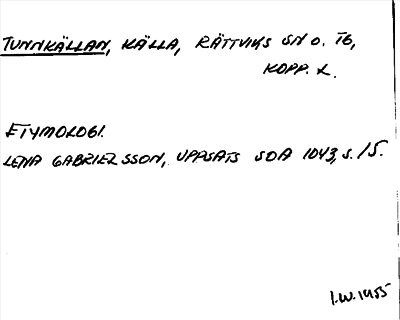 TUNNKÄLLAN, KÄLLA, RÄTTVIKS SN O. TG,
KOPP. L.
ETYMOLOGI.
LENA GABRIELSSON, UPPSATS SOA 1043, S. 15.
I.W. 1955